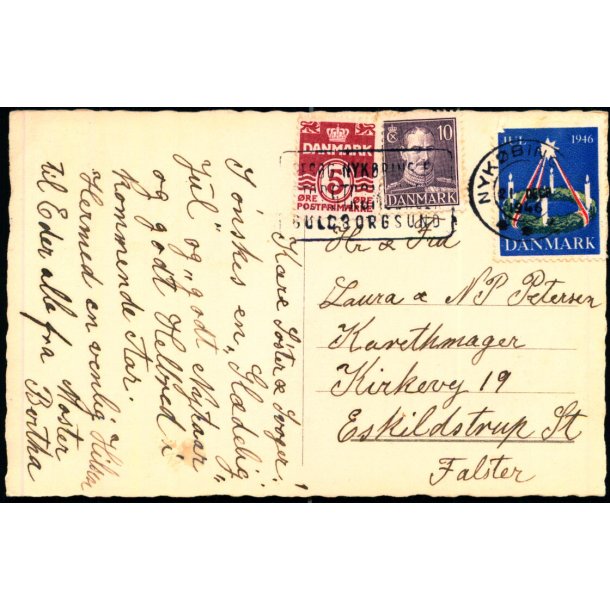 Kære Søster & Svoger!
I ønskes en "Glædelig
Jul" og "godt Nytaar"
og godt Helbred i
kommende Aar.
Hermed en venlig Hilsen
til Eder alle fra Moster
Bertha
DANMARK
5
ØRE ØRE
POSTFRIMÆRKE
10
DANMARK
JUL 1946
DANMARK
NYKØBING
NYKØBING F
GULDBORGSUND
Hr & Fru
Laura & N P Petersen
Karethmager
Kirkevej 19
Eskildstrup St
Falster